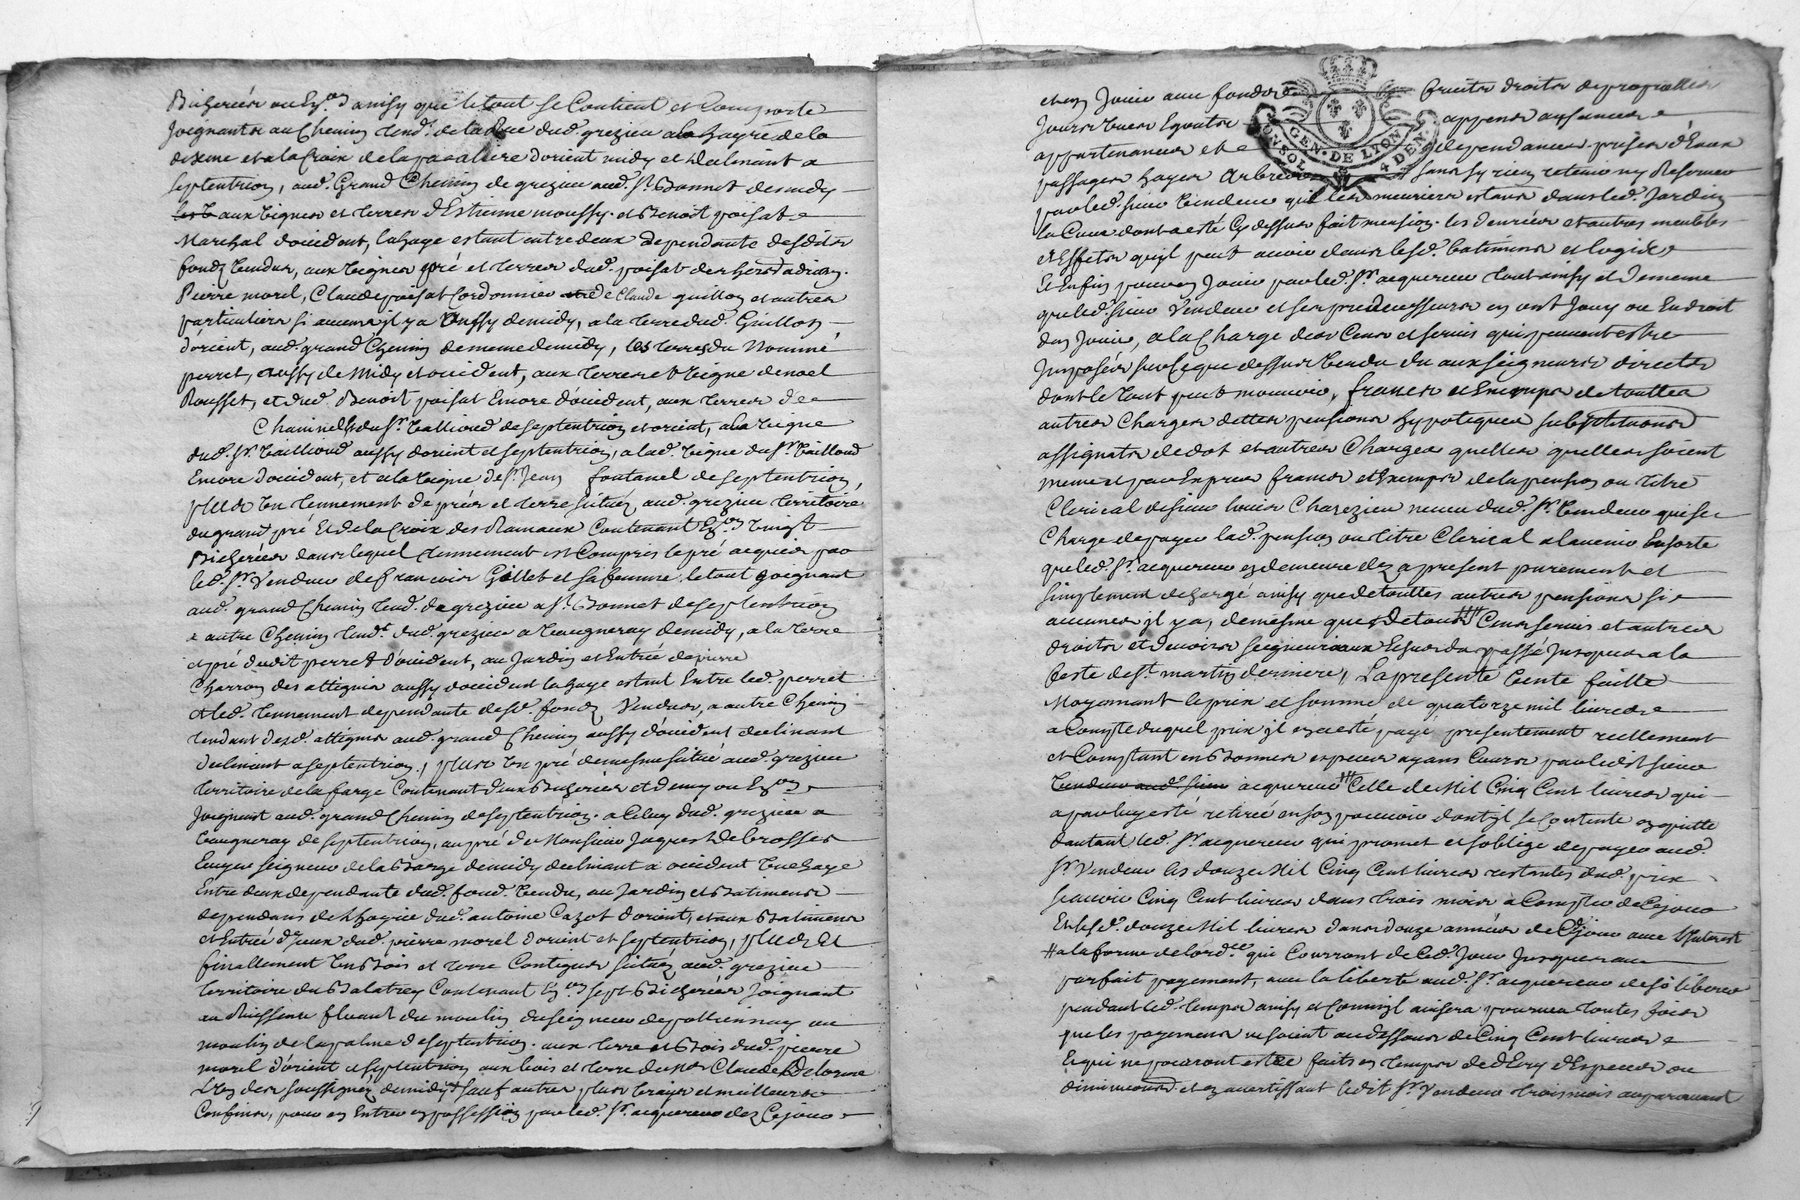 Bicherées ou Ex.on d'ainsy que le tout se Contient et Comporte
Joignants au Chemin tend.t de la Rue dud. grezieu a la de la
dixme et a la Croix de la orient midy et declinant a
septentrion, aud. Grand Chemin de grezieu aud. S.t Bonnet de midy
aux vignes et terres d'Estienne moussy et Benoit poisat
Marchal doccident, la haye estant entre deux dependante desdits
fonds vendus, aux vignes pré et terres dud. poisat des hers adrian
Pierre morel, Claude poisat Cordonnier de Claude guillon et autres
particuliers si aucuns il y a aussy de midy, a la terre dud. Guillon
d'orient, aud. grand Chemin de meme de midy, les terres du Nommé
perret, aussy de Midy et occident, aux terres et vigne de noel
Rousset, et dud. Benoit poisat Encore d'occident, aux terres de
du S.r tailliond de septentrion et orient, a la vigne
dud. S.r tailliond aussy dorient et septentrion, a lad. vigne du S.r tailliond
Encore d'occident, et a la vigne de S.r Jean fontanel de septentrion
plus Un tennement de prés et terre situés aud. grezieu territoire
du grand pré Et de la Croix des Rameaux Contenant Ex.on vingt
Bicherées dans lequel tennement est Compris le pré acquis par
led. S.r Vendeur de francois Gillet et sa femme, le tout Joignant
aud. grand Chemin tend. de grezieu a S.t Bonnet de septentrion
a autre Chemin tend.t dud. grezieu a vaugneray de midy, a la terre
et pré dudit perret d'occident, au Jardin et Entrée de pierre
Charron des attignies aussy doccident la haye estant Entre led. perret
et led. tennement dependante desd. fonds Vendus, a autre Chemin
tendant desd. attignies aud. grand Chemin aussy d'occident declinant
declinant a septentrion, plus Un pré de mesme situé aud. grezieu
territoire de la farge Contenant deux Bicherées et demy ou Ex.on
Joignant aud. grand Chemin de septentrion a Celuy dud. grezieu a
vaugneray de septentrion, au pré de Monsieur Jacques Debrosses
Ecuyer seigneur de la Barge de midy declinant a occident Une haye
Entre deux dependante dud. fond. Vendu, au Jardin et Batiments
dependans de dud. antoine Cazot dorient, et aux Batiments
et Entrée d'yeux dud. pierre morel dorient et septentrion, plus et
finallement Un Bois et terre Contigus situés aud. grezieu
territoire du Balatrey Contenant Ex.on sept Bicherées Joignant
au Ruisseau fluant du moulin du seigneur de pollionnay au
moulin de la palme de septentrion aux terre et Bois dud. pierre
morel d'orient et septentrion aux bois et terre de Claude Delorme
L'un des soussignés de midy et sauf autres plus vrays et meilleurs
Confins, pour en Entrer en possession par led. S.r acquereur dez Cejour
et en Jouir aux fonds fruits droits de proprietés
Jours vues Egouts appens aisances
appartenances et dependances prises d'Eaux
passages hayes Arbres sans sy rien retenir ny Reserver
par led. sieur Vendeur que les meuriers estans dans led. Jardin
la Cuve dont a esté Cy dessus fait mension les denrées et autres meubles
et Effets qu'il peut avoir dans lesd. batiments et logis
Et Enfin pour en Jouir par led. S.r acquereur tout ainsy et de meme
que led. sieur Vendeur et ses predecesseurs en ont Jouy ou Eu droit
den Jouir, a la Charge des Cens et servis qui peuvent estre
Imposés sur Ce que dessus vendu du aux seigneurs directs
dont le tout peut mouvoir, francs et Exempts de touttes
autres Charges dettes pensions hypoteques substitutions
assignats de dot et autres Charges quelles quelles soient
meme et par Exprés francs et Exempts de la pension ou titre
Clerical de sieur Charezieu neveu dud. S.r Vendeur qui se
Charge de payer lad. pension ou titre Clerical a lavenir Ensorte
que led. S.r acquereur en demeure dez a present purement et
simplement dechargé ainsy que de touttes autres pensions si
aucunes il y a, de mesme que de tous Cens servis et autres
droits et devoirs seigneuriaux Echus du passé Jusques a la
feste de S.t martin derniere, La presente vente faitte
Moyennant le prix et somme de quatorze mil livres
a Compte duquel prix il en a esté payé presentement reellement
et Comptant en Bonnes especes ayans Cours par ledit sieur
Vendeur aud. sieur acquereur Celle de Mil Cinq Cent livres qui
a par luy esté retirée en son pouvoir dont il se Contente en quitte
d'autant led. S.r acquereur qui promet et soblige de payer aud.
S.r Vendeur les douze Mil Cinq Cent livres restantes dud. prix
scavoir Cinq Cent livres dans trois mois a Compter de Cejour
Et lesd. douze Mil livres dans douze années de Cejour avec Interest
a la forme de lord.ce qui Courront de Ced. Jour Jusques au
parfait payement, avec la liberté aud. S.r acquereur de se libérer
pendant led. temps ainsy et Comm'il avisera pourveu toutes fois
que les payements ne soient au dessous de Cinq Cent livres
Et qui ne pourront estre faits en temps de d'Ecry d'Especes ou
diminutions et en avertissant ledit S.r Vendeur trois mois auparavant
GEN. DE LION
4 DEN.